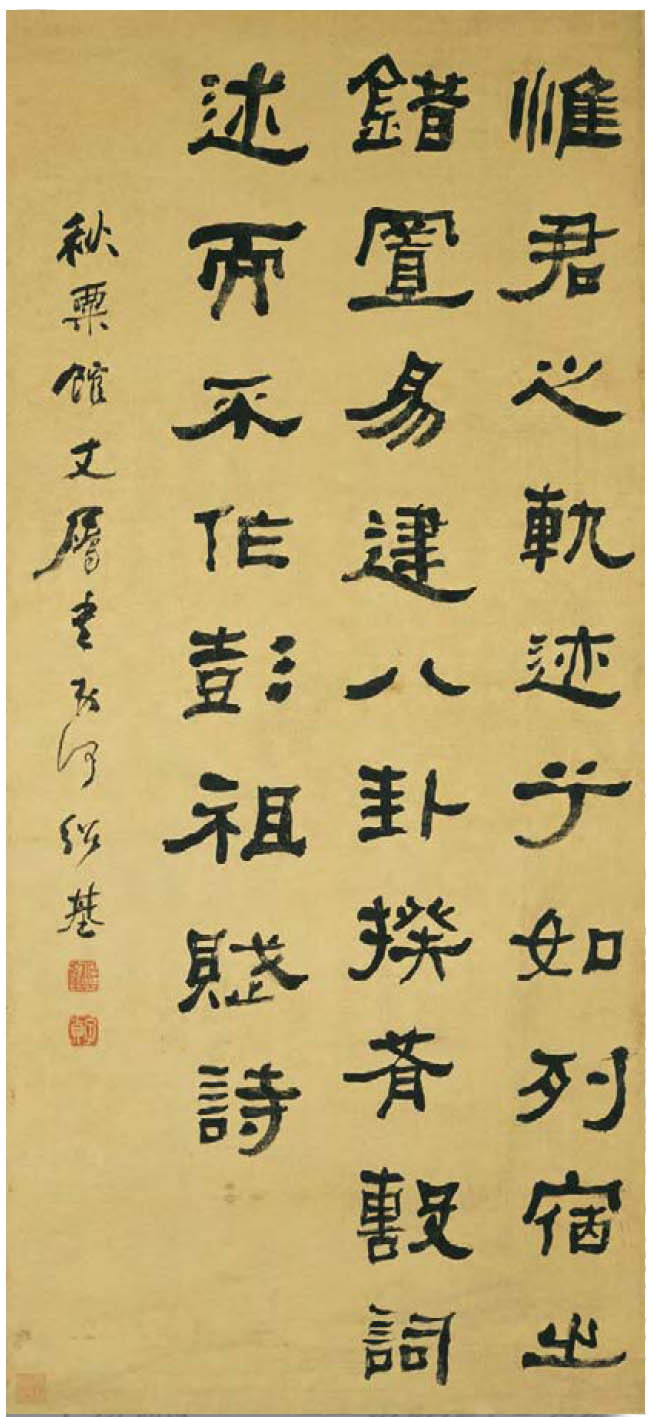 惟君之軌迹兮如列宿之
錯置易建八卦揆肴毄詞
述而不作彭祖賦詩
秋粟館丈屬書何紹基